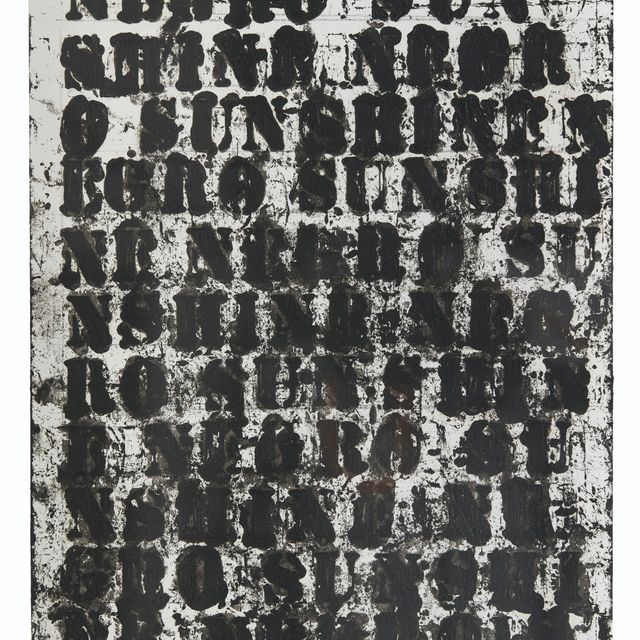 NEGRO SUN
SHINE NEGR
O SUNSHINE N
EGRO SUNSHI
NE NEGRO SU
NSHINE NEG
RO SUNSHIN
E NEGRO SU
NSHINE NE
GRO SUNSHI